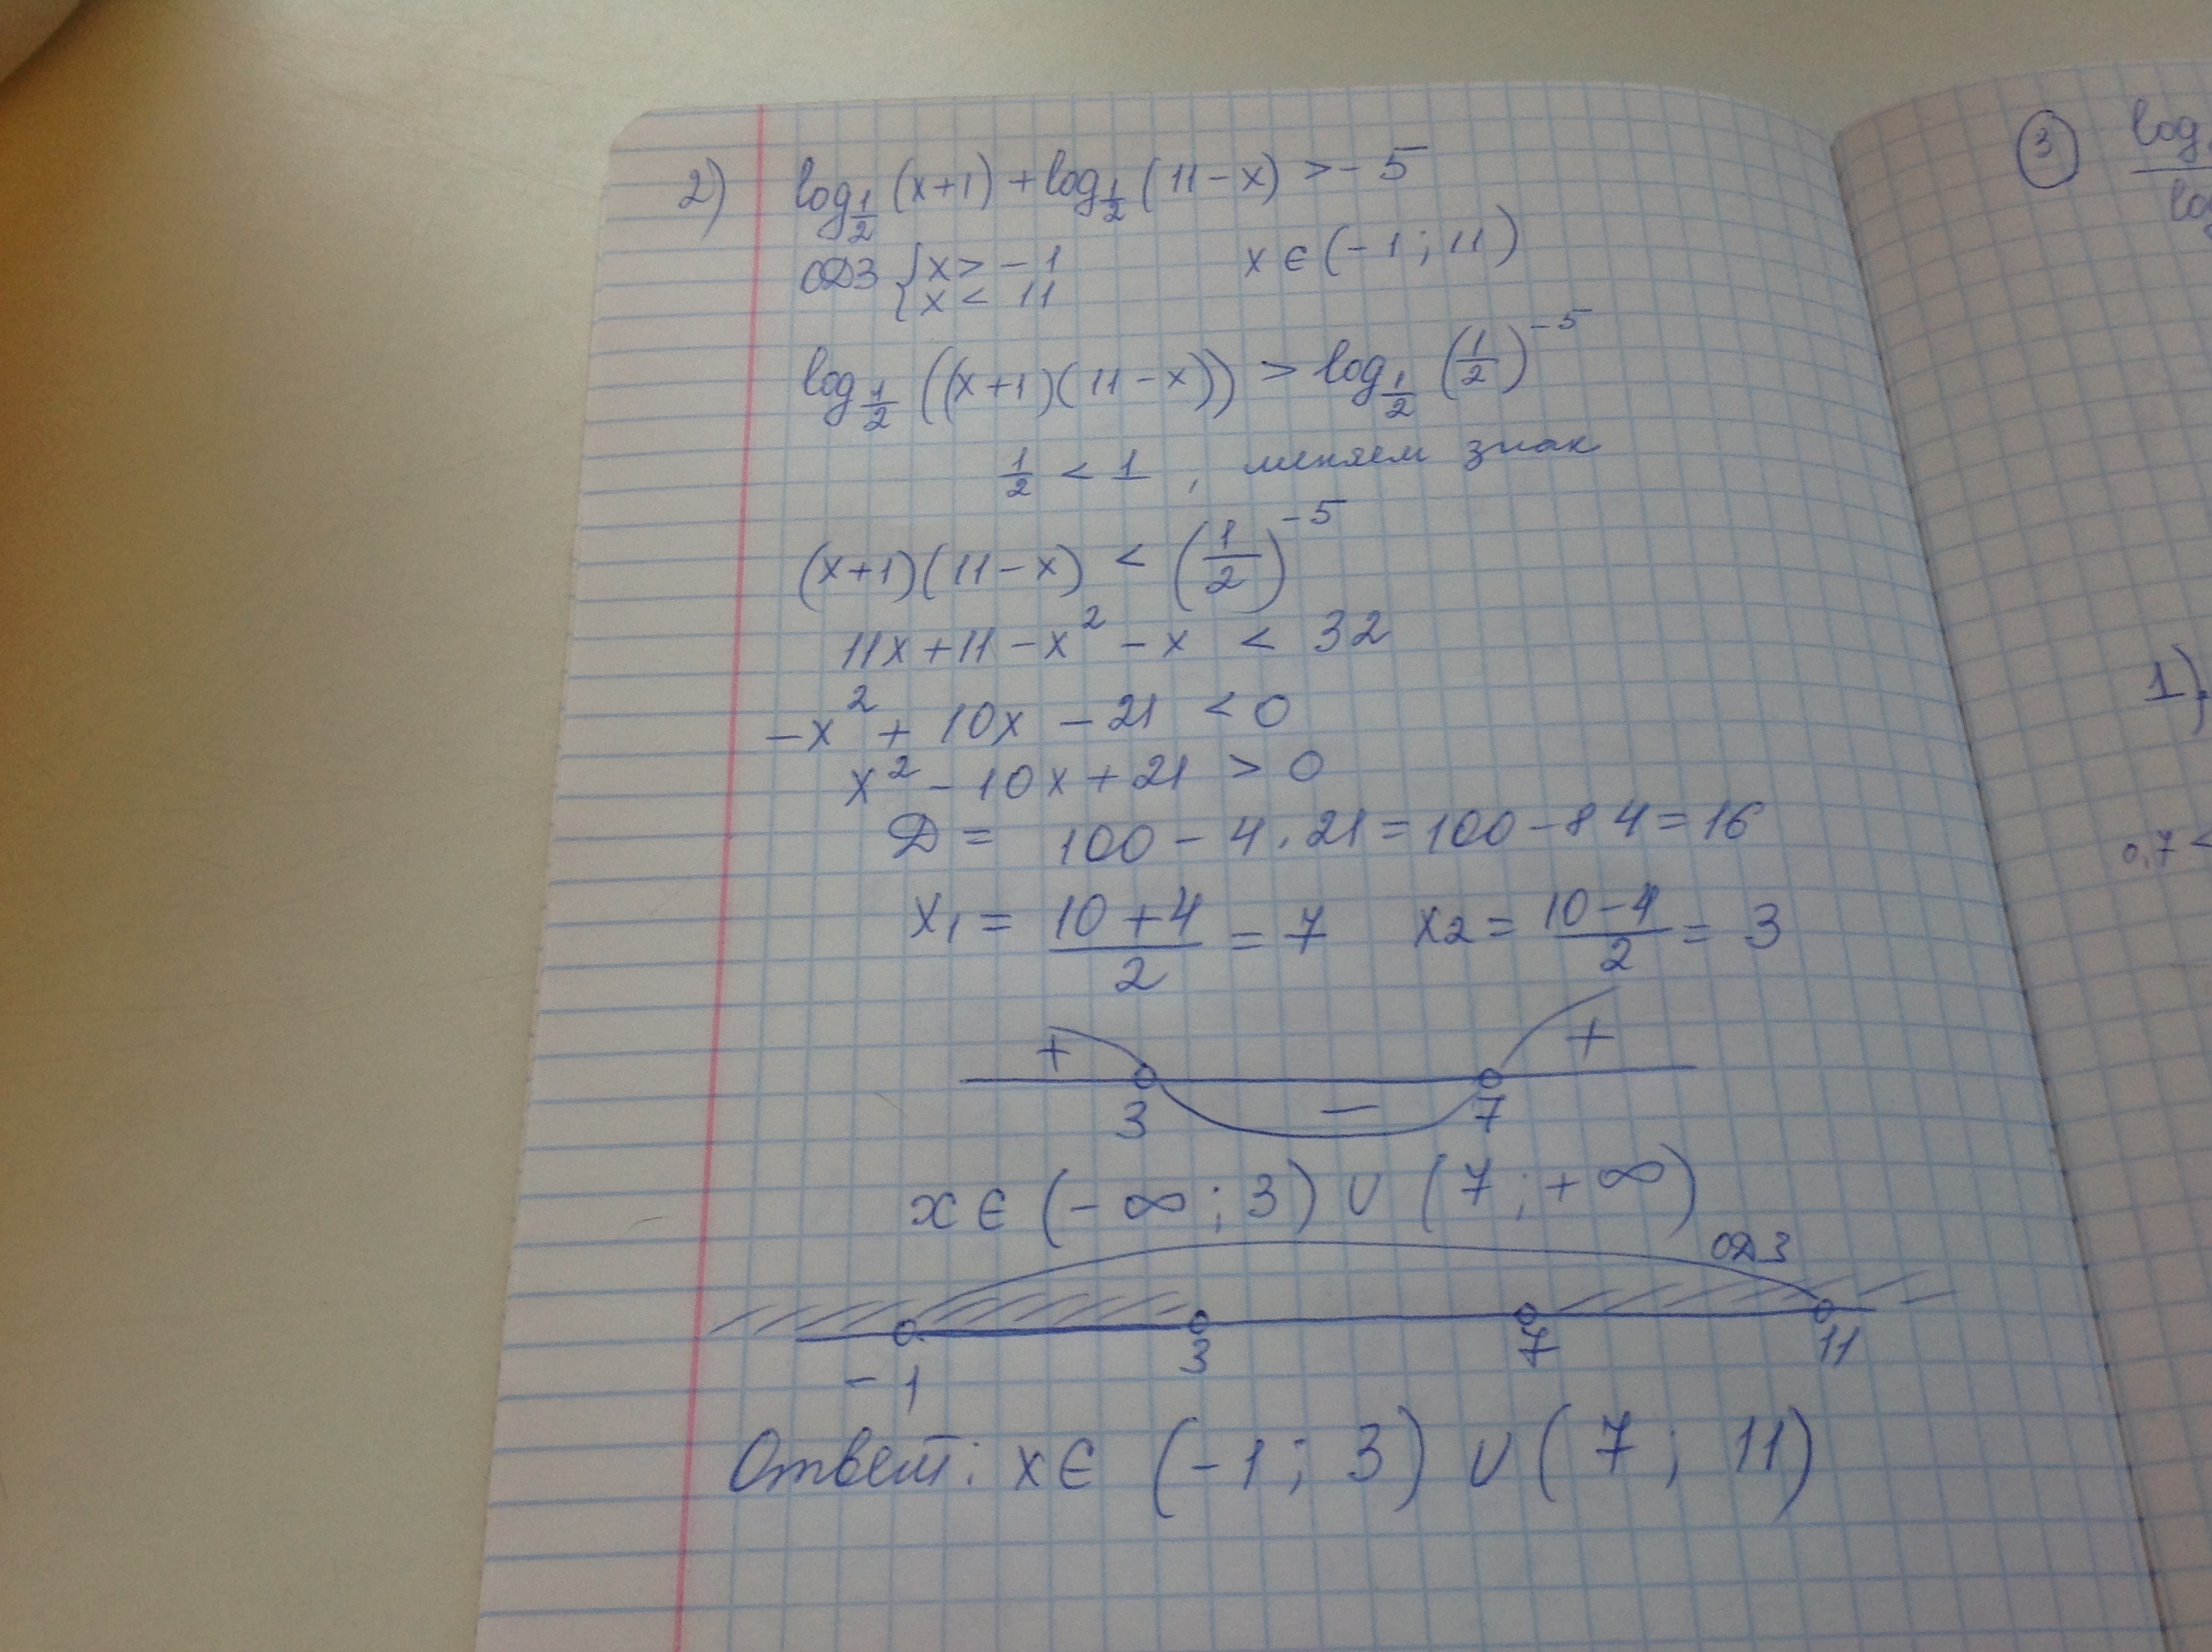 2) log_{1/2} (x+1) + log_{1/2} (11-x) > -5
ОДЗ { x > -1 x ∈ (-1; 11)
x < 11
log_{1/2} ((x+1)(11-x)) > log_{1/2} (1/2)^{-5}
1/2 < 1, меняем знак
(x+1)(11-x) < (1/2)^{-5}
11x + 11 - x² - x < 32
-x² + 10x - 21 < 0
x² - 10x + 21 > 0
Д = 100 - 4 · 21 = 100 - 84 = 16
x₁ = (10+4)/2 = 7 x₂ = (10-4)/2 = 3
+ - +
3 7
x ∈ (-∞; 3) ∪ (7; +∞)
ОДЗ
-1 3 7 11
Ответ: x ∈ (-1; 3) ∪ (7; 11)
3 log
log
1)
0,7 <